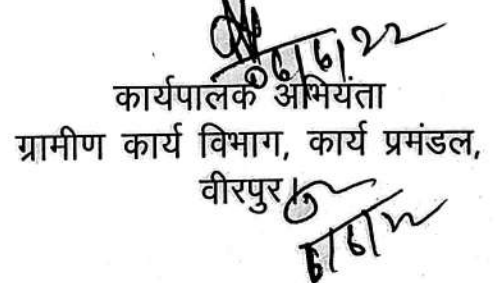 06/6/22
कार्यपालक अभियंता
ग्रामीण कार्य विभाग, कार्य प्रमंडल,
वीरपुर
6/6/22